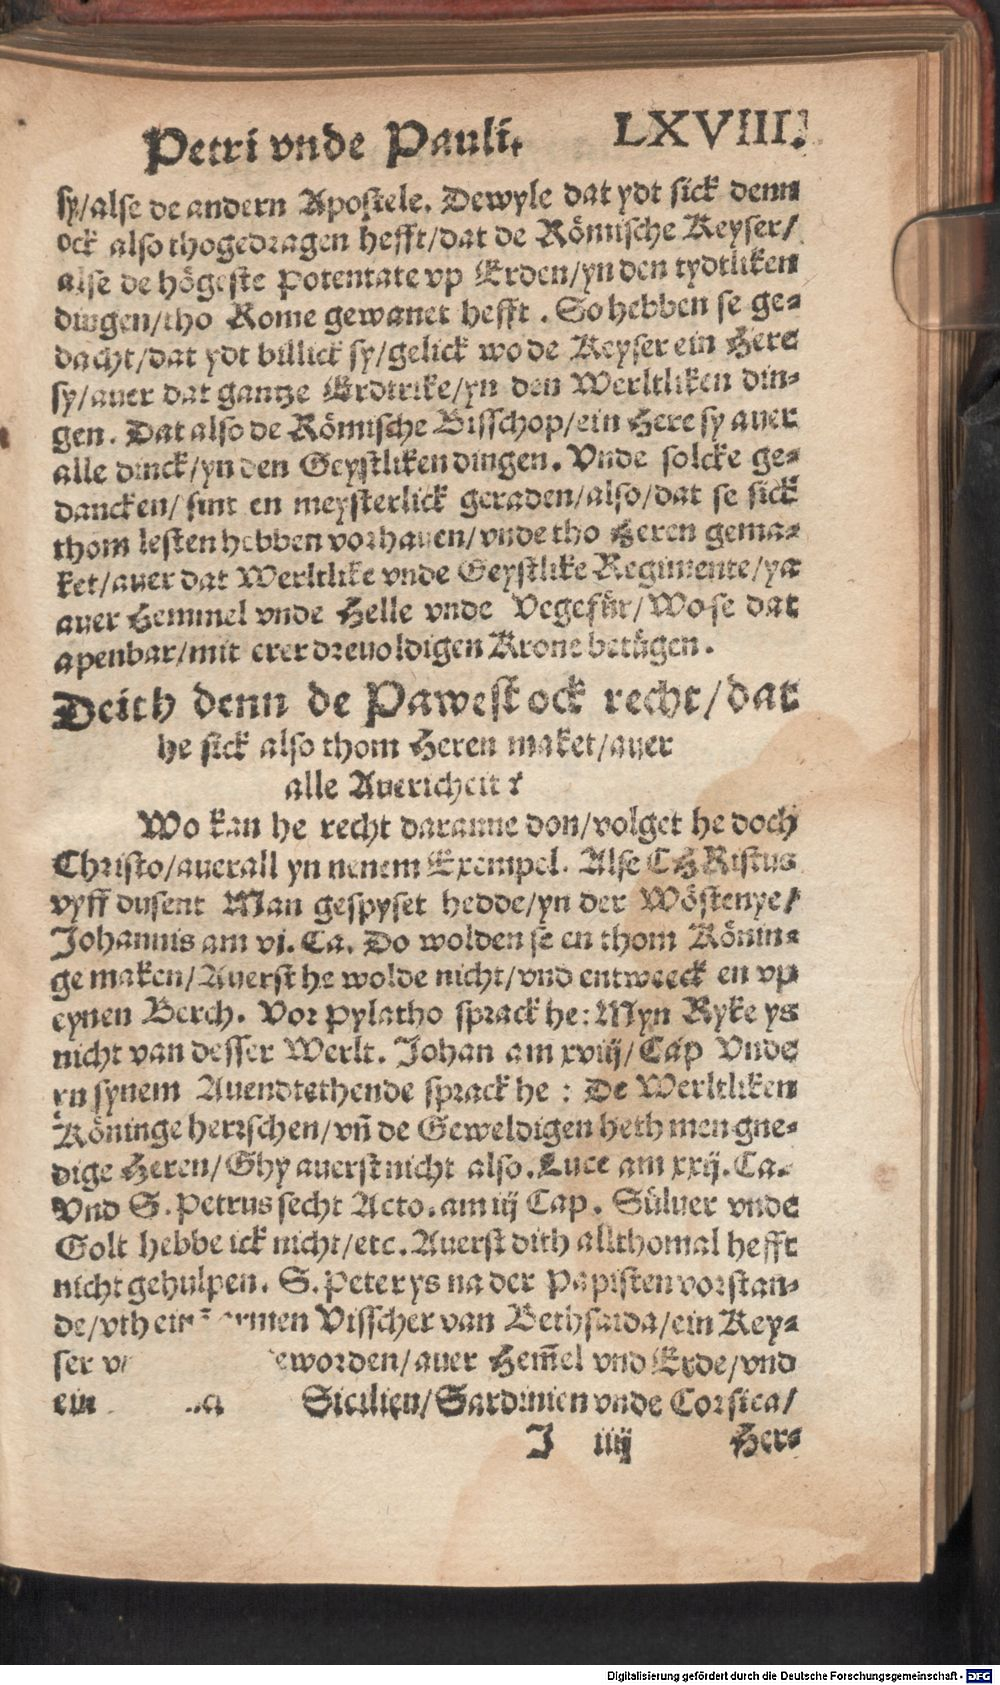 Petri vnde Pauli. LXVIII.
sy/alse de andern Apostele. Dewyle dat ydt sick denn
ock also thogedragen hefft/dat de Römische Keyser/
alse de högeste Potentate vp Erden/yn den tydtliken
dingen/tho Rome gewanet hefft. So hebben se ge-
dacht/dat ydt billick sy/gelick wo de Keyser ein Here
sy/auer dat gantze Erdtrike/yn den Werltliken din-
gen. Dat also de Römische Bisschop/ein Here sy auer
alle dinck/yn den Geystliken dingen. Vnde solcke ge-
dancken/sint en meysterlick geraden/also/dat se sick
thom lesten hebben vorhauen/vnde tho Heren gema-
ket/auer dat Werltlike vnde Geystlike Regimente/ya
auer Hemmel vnde Helle vnde Vegefür/Wo se dat
apenbar/mit erer dreuoldigen Krone betügen.
Deith denn de Pawest ock recht/dat
he sick also thom Heren maket/auer
alle Auericheit?
Wo kan he recht daranne don/volget he doch
Christo/auerall yn nenem Exempel. Alse CHRistus
vyff dusent Man gespyset hedde/yn der Wöstenye/
Johannis am vi. Ca. Do wolden se en thom Könin-
ge maken/Auerst he wolde nicht/vnd entweeck en vp
eynen Berch. Vor Pylatho sprack he: Myn Ryke ys
nicht van desser Werlt. Johan am xviij/Cap Vnde
yn synem Auendtethende sprack he: De Werltliken
Köninge herrschen/vñ de Geweldigen heth men gne-
dige Heren/Ghy auerst nicht also. Luce am xxij. Ca.
Vnd S. Petrus secht Acto. am iij Cap. Süluer vnde
Golt hebbe ick nicht/etc. Auerst dith allthomal hefft
nicht gehulpen. S. Peter ys na der Papisten vorstan-
de/vth ein armen Visscher van Bethsaida/ein Key-
ser eworden/auer Hem̃el vnd Erde/vnd
ein Sicilien/Sardinien vnde Corsica/
J iiij Her-
Digitalisierung gefördert durch die Deutsche Forschungsgemeinschaft - DFG